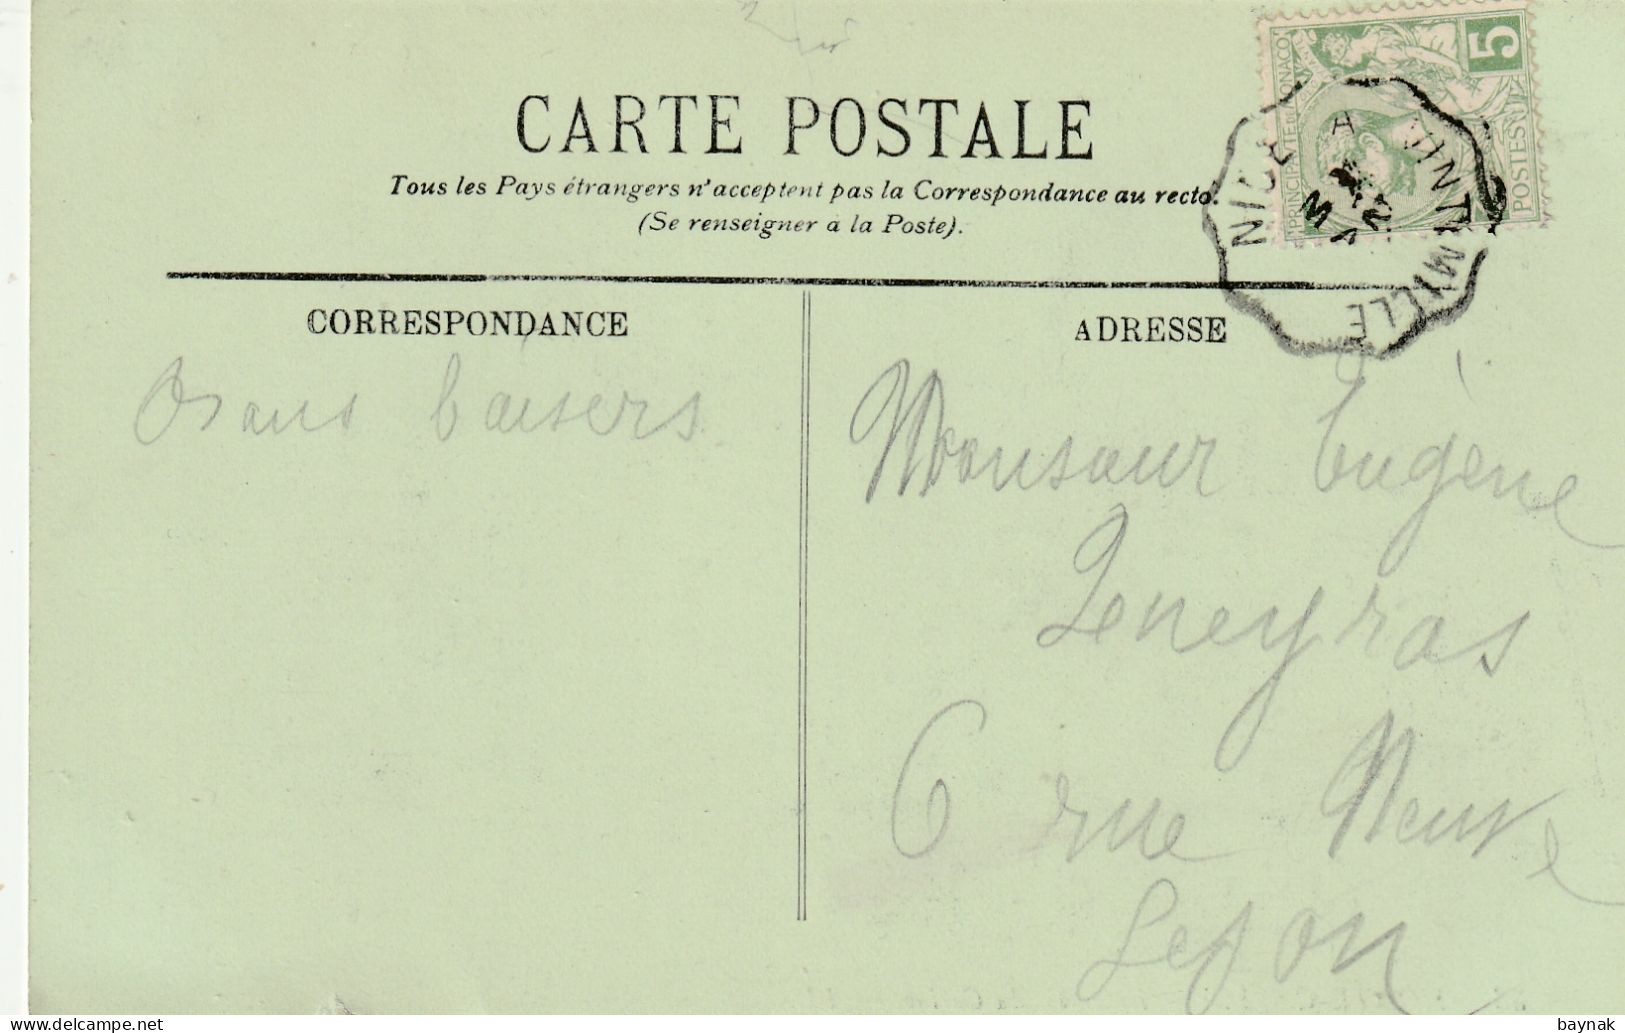 CARTE POSTALE
Tous les Pays étrangers n'acceptent pas la Correspondance au recto.
(Se renseigner à la Poste).
PRINCIPAUTÉ DE MONACO
5
POSTES
NICE A VINTIMILLE
CORRESPONDANCE
ADRESSE
baisers
Monsieur Eugène
6 rue Neuve
baynak